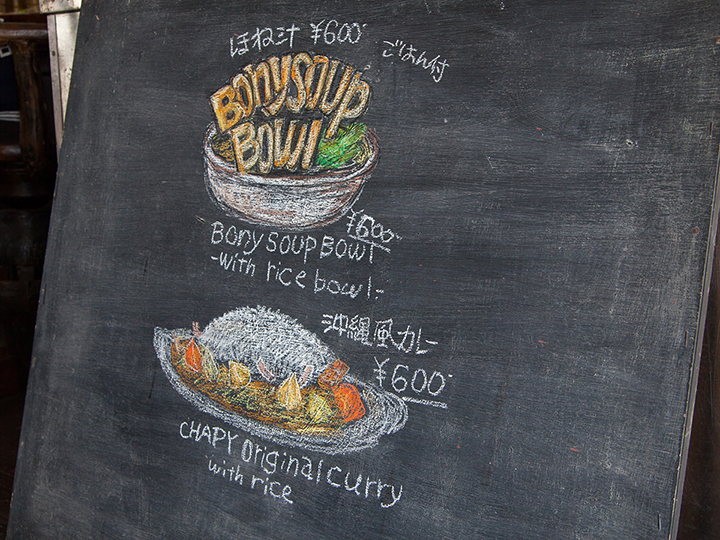 ほね汁 ¥600- ごはん付
BONYSOUP
BOWl
¥600-
Bony soup Bowl
-with rice bowl-
沖縄風カレー
¥600-
CHAPY Original curry
with rice